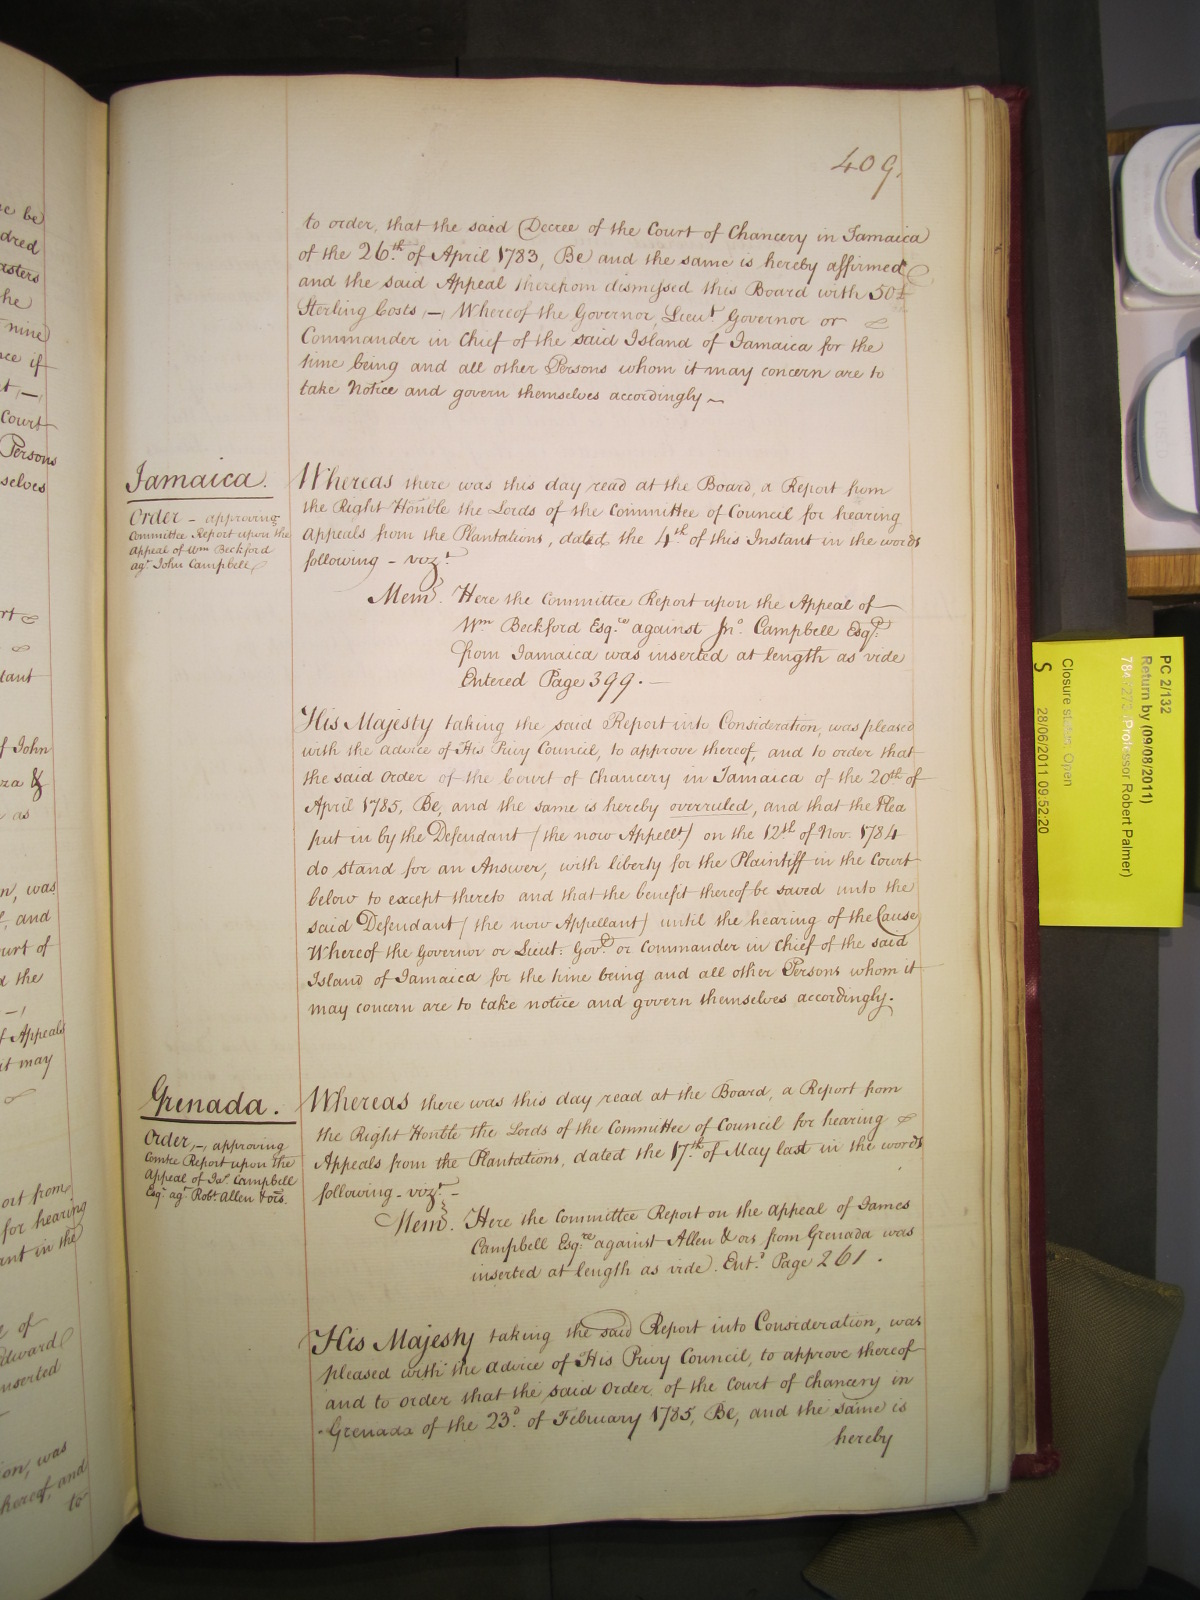 409.
to order, that the said Decree of the Court of Chancery in Jamaica
of the 26th of April 1783, Be and the same is hereby affirmed
and the said Appeal therefrom dismissed this Board with 50£
Sterling Costs,—, Whereof the Governor, Lieut Governor or
Commander in Chief of the said Island of Jamaica for the
time being and all other Persons whom it may concern are to
take Notice and govern themselves accordingly ~
Jamaica.
Order – approving
Committee Report upon the
Appeal of Wm Beckford
agt John Campbell
Whereas there was this day read at the Board, a Report from
the Right Honble the Lords of the Committee of Council for hearing
Appeals from the Plantations, dated the 4th of this Instant in the words
following – vizt
Memd. Here the Committee Report upon the Appeal of
Wm Beckford Esqre against Jno. Campbell Esqr.
from Jamaica was inserted at length as vide
Entered Page 399. —
His Majesty taking the said Report into Consideration, was pleased
with the advice of His Privy Council, to approve thereof, and to order that
the said Order of the Court of Chancery in Jamaica of the 20th of
April 1785, Be, and the same is hereby overruled, and that the Plea
put in by the Defendant (the now Appellt) on the 12th of Nov. 1784
do stand for an Answer, with liberty for the Plaintiff in the Court
below to except thereto and that the benefit thereof be saved unto the
said Defendant (the now Appellant) until the hearing of the Cause
Whereof the Governor or Lieut. Govr. or Commander in Chief of the said
Island of Jamaica for the time being and all other Persons whom it
may concern are to take notice and govern themselves accordingly.
Grenada.
Order,–, approving
Comtee Report upon the
Appeal of Jas. Campbell
Esqr agt Robt. Allen & ors.
Whereas there was this day read at the Board, a Report from
the Right Honble the Lords of the Committee of Council for hearing
Appeals from the Plantations, dated the 17th of May last in the words
following – vizt –
Memd. Here the Committee Report on the Appeal of James
Campbell Esqre against Allen & ors from Grenada was
inserted at length as vide. Entd Page 261.
His Majesty taking the said Report into Consideration, was
pleased with the advice of His Privy Council, to approve thereof
and to order that the said Order of the Court of Chancery in
Grenada of the 23d. of February 1785, Be, and the same is
hereby
PC 2/132
Return by (09/08/2011)
(Professor Robert Palmer)
Closure status: Open
S 28/06/2011 09:52:20